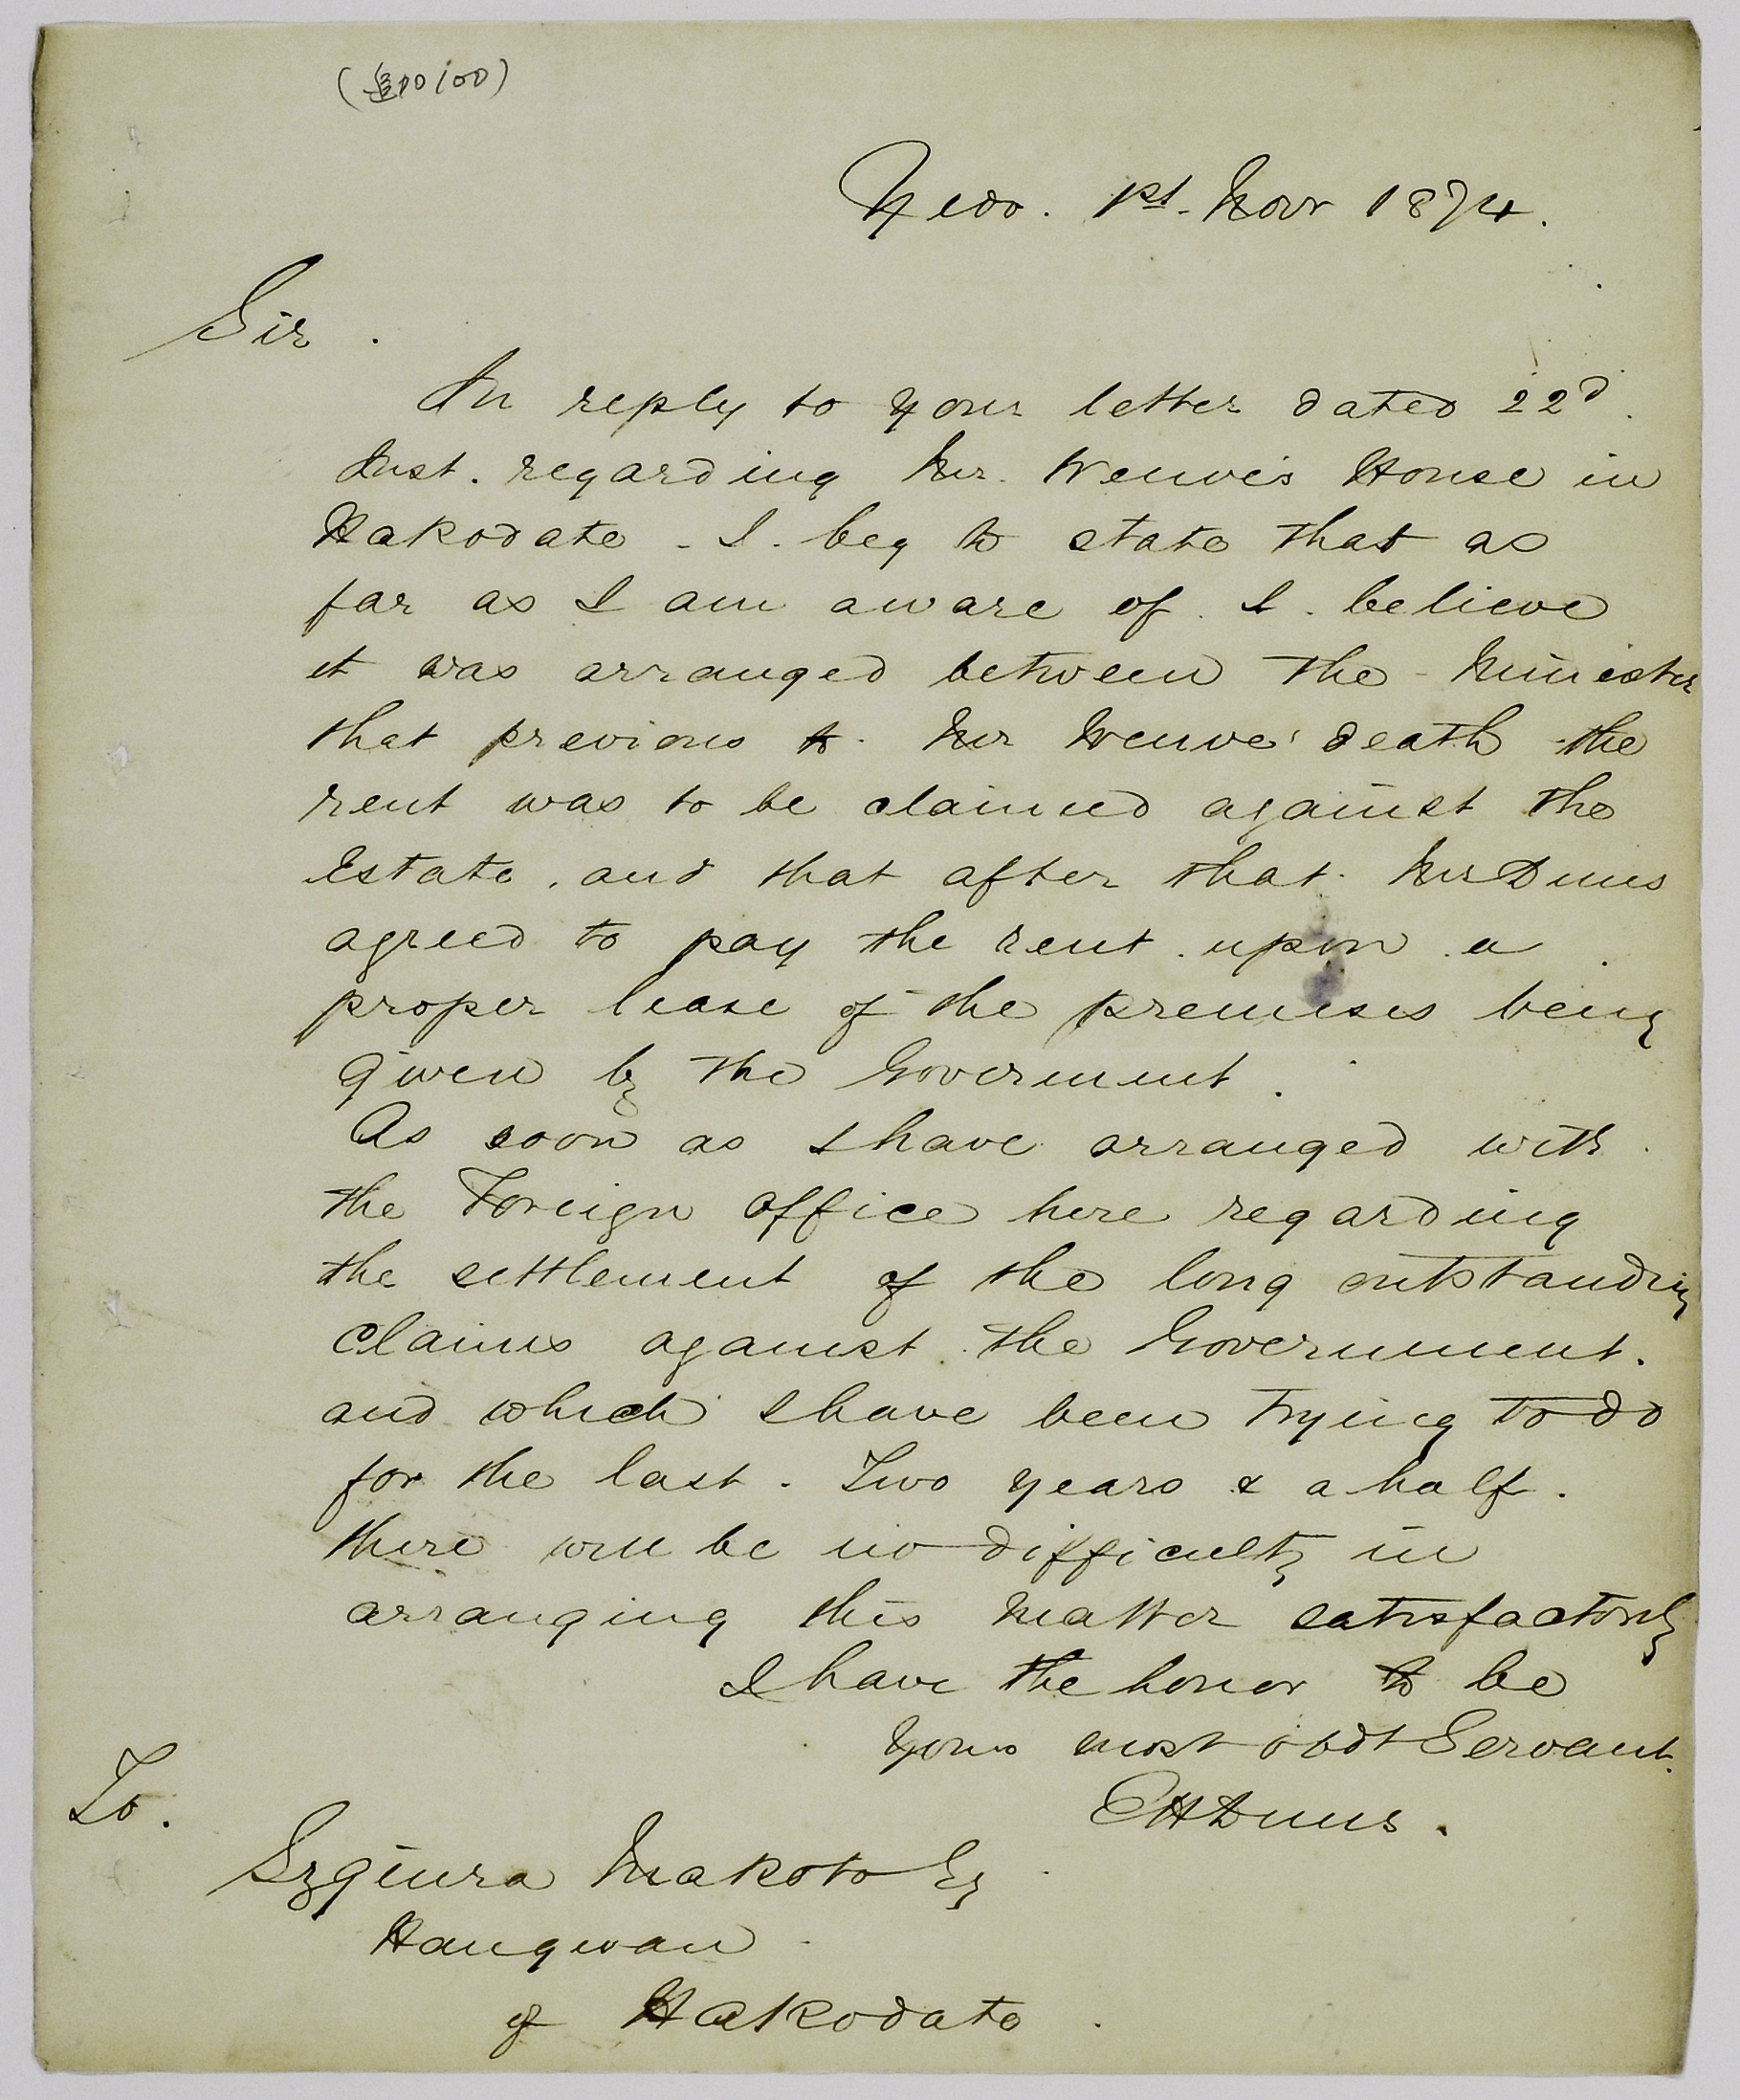 Yedo. 1st. Novr 1874.
Sir.
In reply to your letter dated 22d.
Inst. regarding Mr. Weuve's House in
Hakodate - I. beg to state that as
far as I am aware of. I. believe
it was arranged between the - Minister
that previous to. Mr Weuve' death the
rent was to be claimed against the
Estate. and that after that. Mr Duus
agreed to pay the rent. upon. a
proper lease of the premises being
given by the Goverment.
As soon as I have arranged with
the Foreign office here regarding
the settlement of the long outstanding
claims against. the Government.
and which I have been trying to do
for the last. Two years & a half.
there will be no difficulty in
arranging this Matter satisfactorily
I have the honor to be
Yours most obdt Servant.
EHDuus.
To.
Makoto Esq
Hangwan
of Hakodate